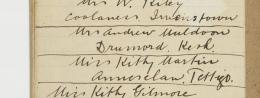 Mrs W. Riley
Coolaness Irvinestown
Mrs Andrew Muldoon
Drumord, Kesh.
Miss Kitty Martin
Anneselan, Tettigo.
Miss Kitty Gilmore